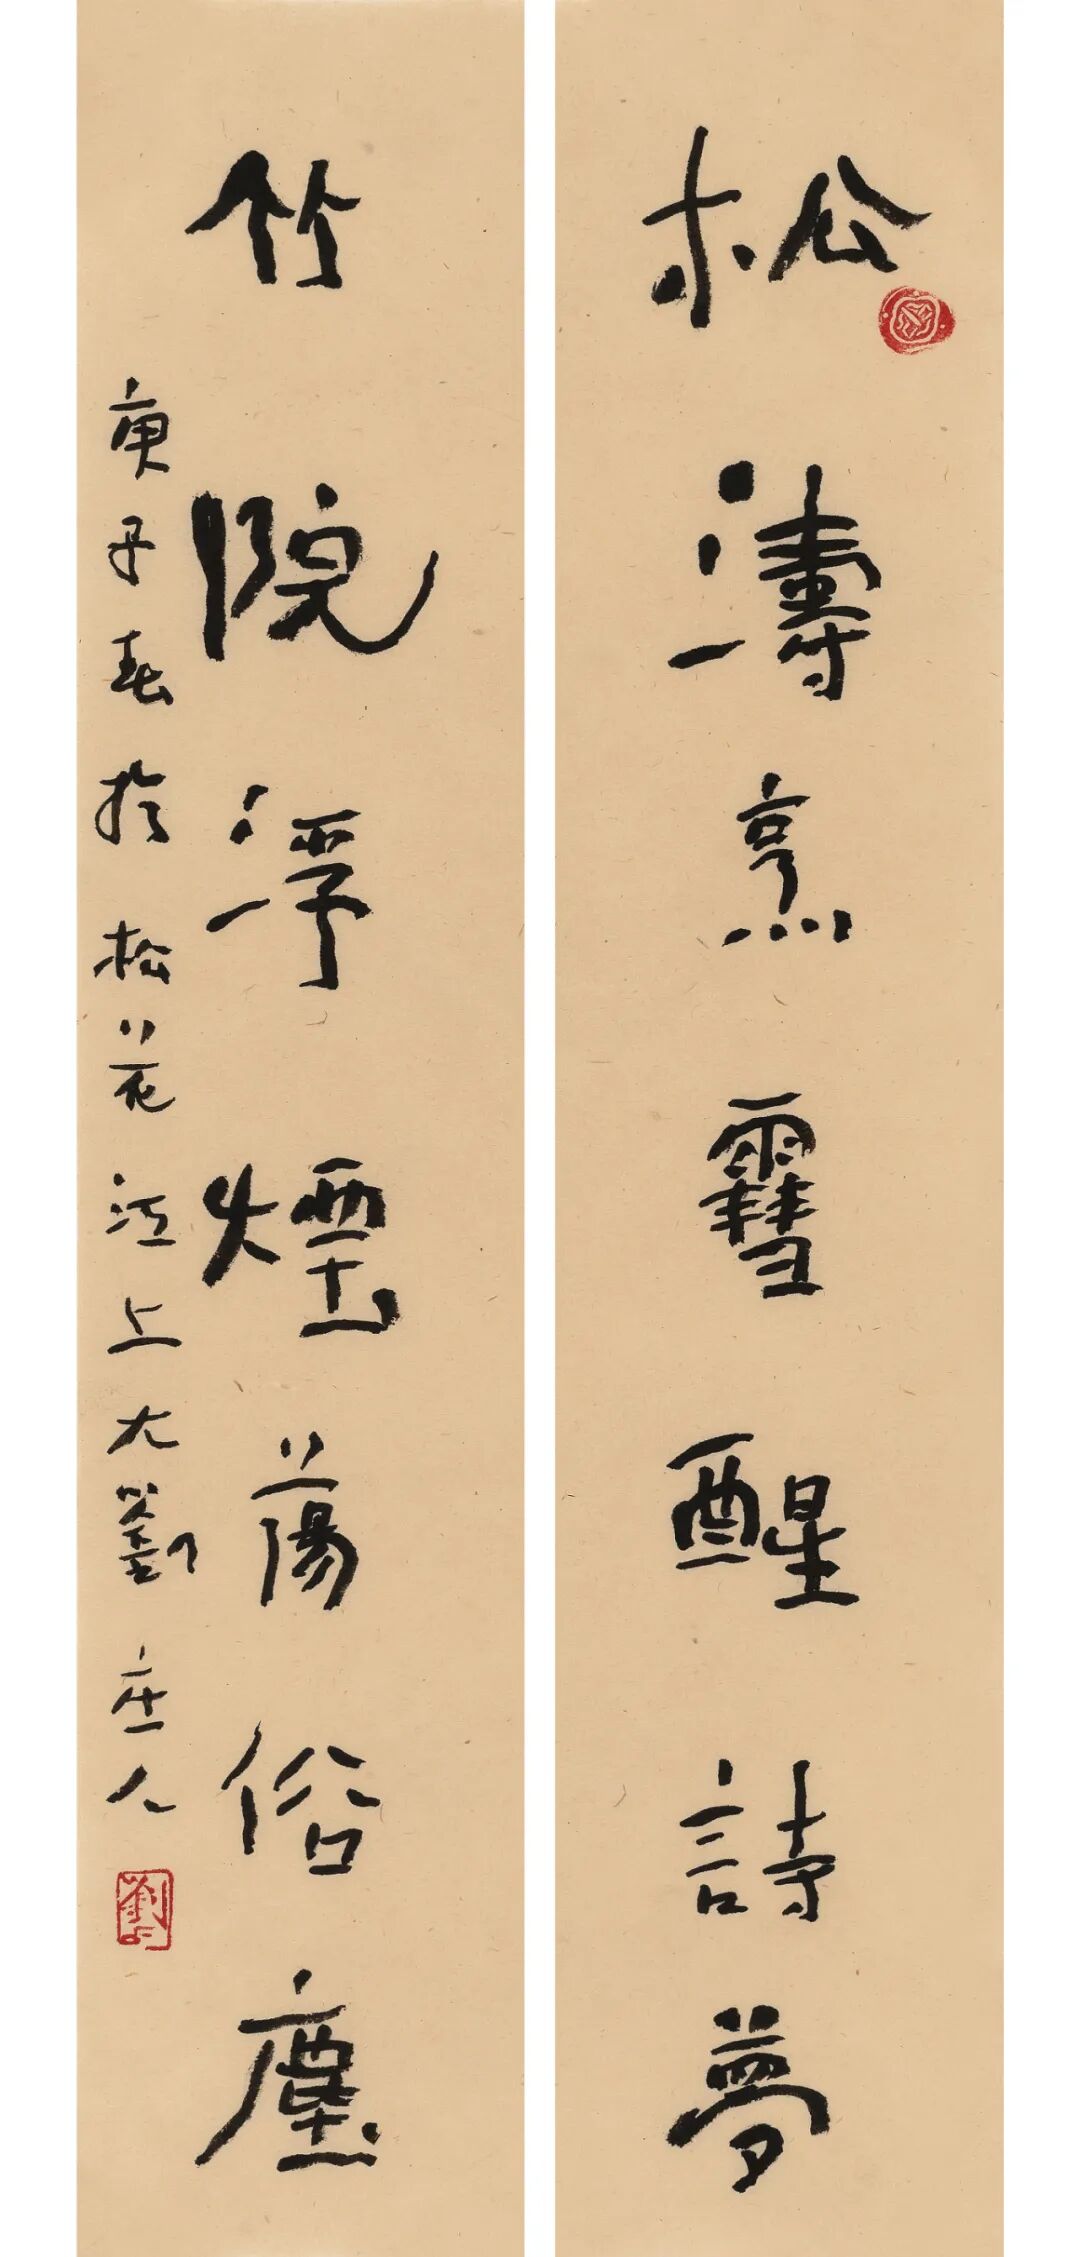 松濤烹雪醒詩夢
竹院浮煙蕩俗塵
庚子春於松花江上大劉庄人